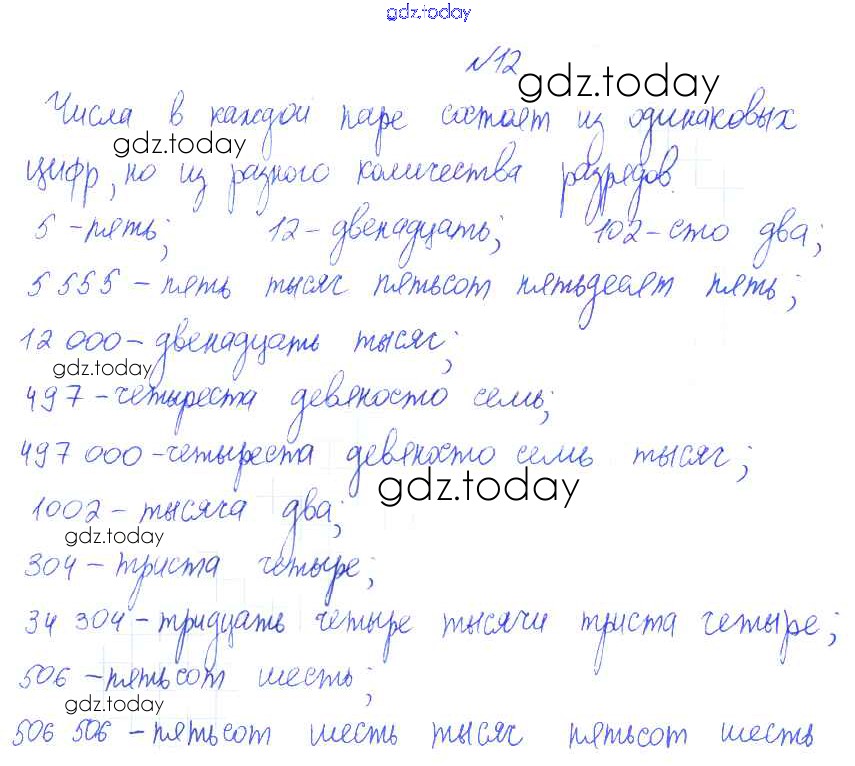 gdz.today
№12
gdz.today
Числа в каждой паре состоят из одинаковых
gdz.today
цифр, но из разного количества разрядов.
5 - пять; 12 - двенадцать; 102 - сто два;
5 555 - пять тысяч пятьсот пятьдесят пять;
12 000 - двенадцать тысяч;
gdz.today
497 - четыреста девяносто семь;
497 000 - четыреста девяносто семь тысяч;
gdz.today
1002 - тысяча два;
gdz.today
304 - триста четыре;
34 304 - тридцать четыре тысячи триста четыре;
506 - пятьсот шесть;
gdz.today
506 506 - пятьсот шесть тысяч пятьсот шесть